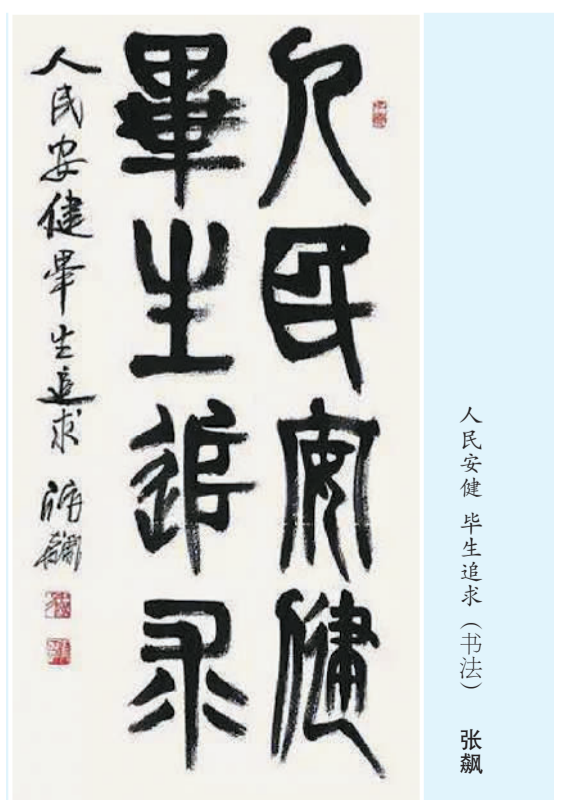 人民安健
畢生追求
人民安健畢生追求 張飆
人民安健 毕生追求（书法） 张飙